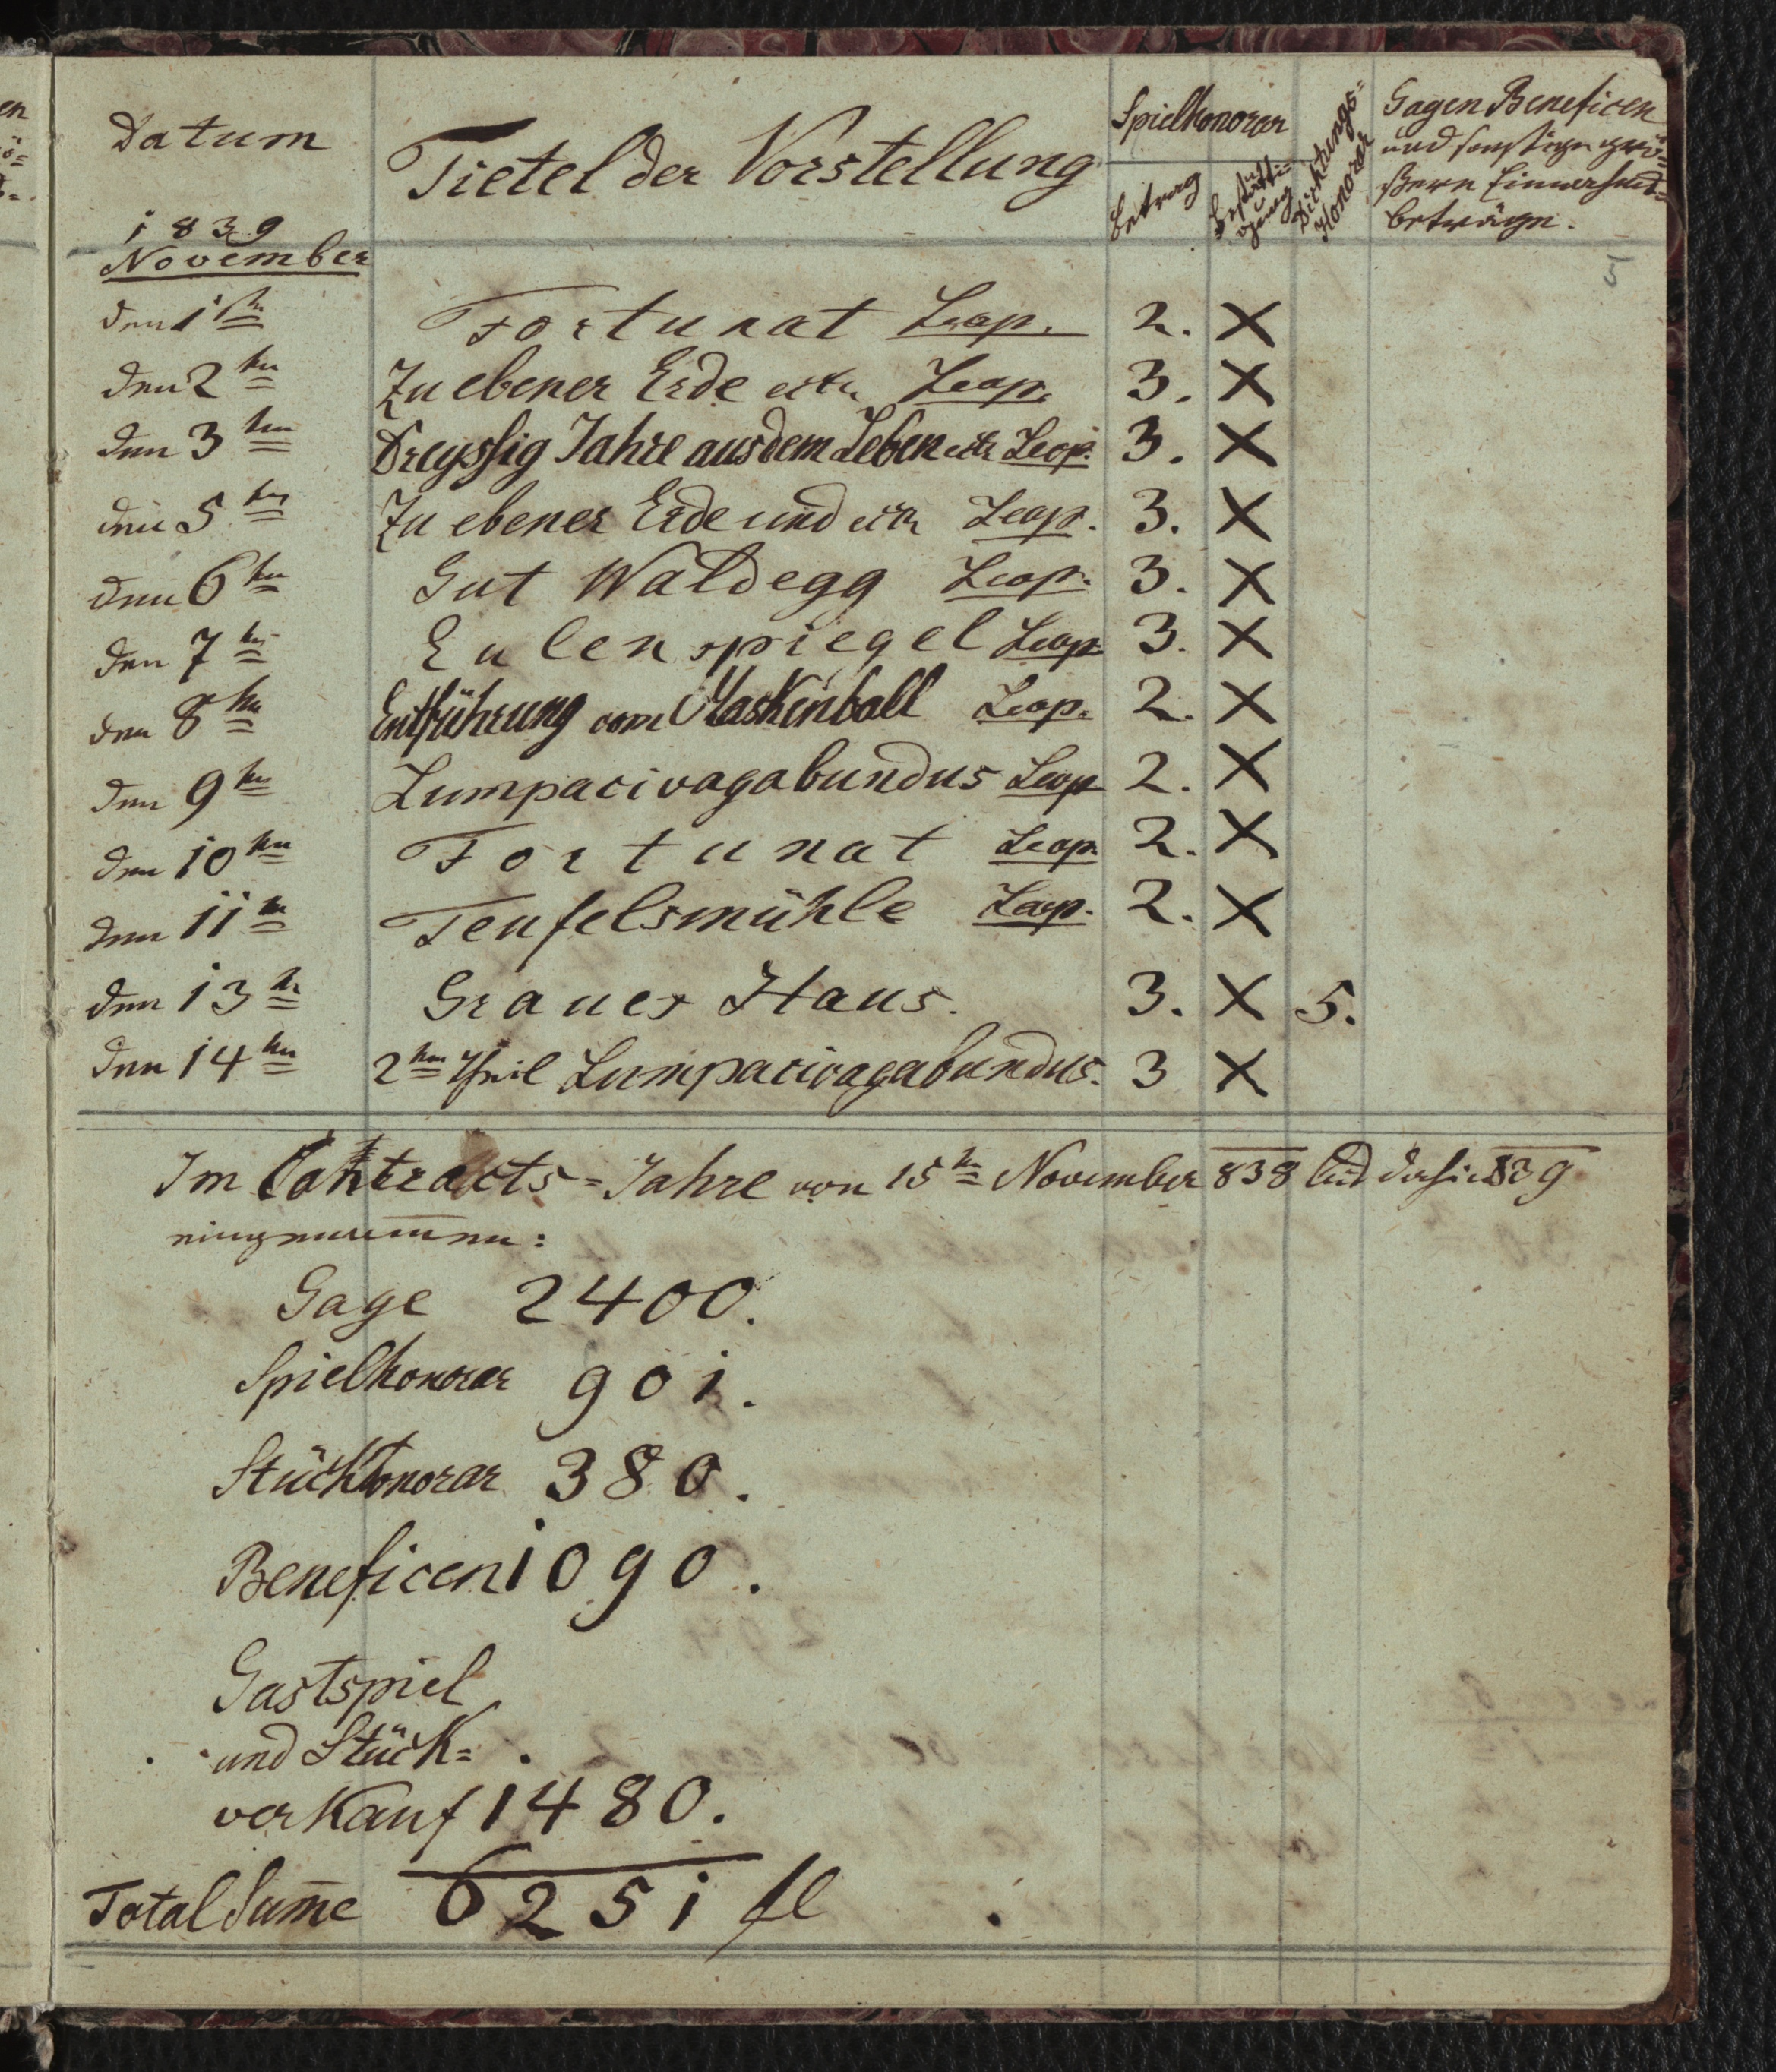 Datum
Tietel der Vorstellung
Spielhonorar
Betrag
Bestätti=
gung
Dichtungs=
Honorar
Gagen Beneficen
und sonstige grö=
ßere Einnahms=
beträge.
1839
November
5
den 1ten Fortunat Leop. 2. X
den 2ten Zu ebener Erde ectr Leop. 3. X
den 3ten Dreyssig Jahre aus dem Leben ectr Leop. 3. X
den 5ten Zu ebener Erde und ectr Leop. 3. X
den 6ten Gut Waldegg Leop. 3. X
den 7ten Eulenspiegel Leop. 3. X
den 8ten Entführung vom Maskenball Leop. 2. X
den 9ten Lumpacivagabundus Leop 2. X
den 10ten Fortunat Leop. 2. X
den 11ten Teufelsmühle Leop. 2. X
den 13ten Graues Haus. 3. X 5.
den 14ten 2ten Theil Lumpacivagabundus. 3 X
Im Contracts=Jahre von 15ten November 838 bis dahin 839
eingenommen:
Gage 2400.
Spielhonorar 901.
Stückhonorar 380.
Beneficen 1090.
Gastspiel
und Stück=
verkauf 1480.
Total Sume 6251 fl